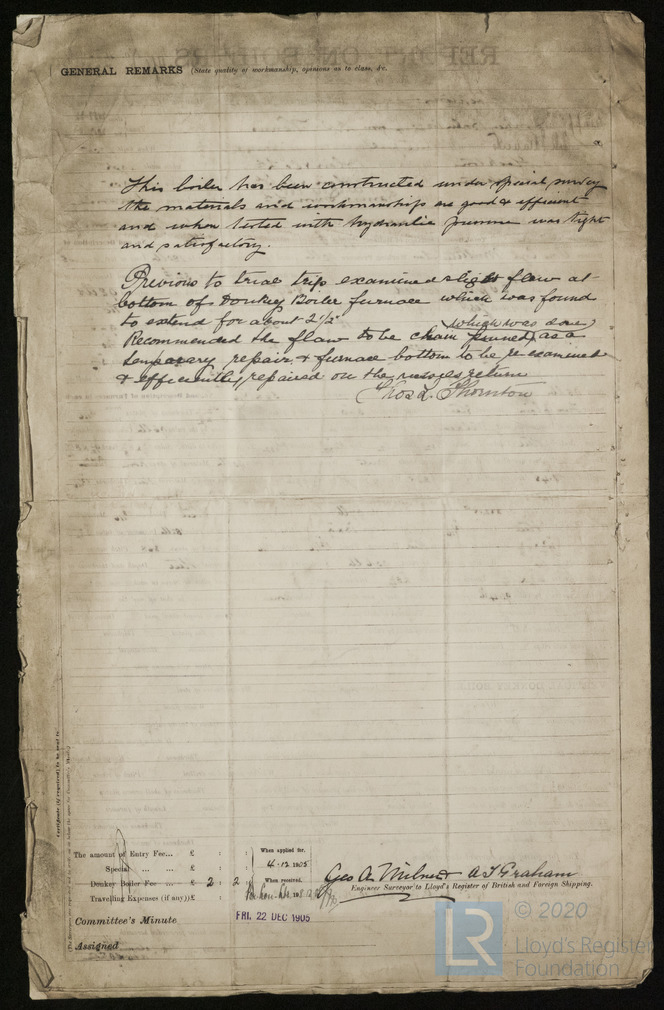 GENERAL REMARKS (State quality of workmanship, opinions as to class, &c.
This boiler has been constructed under special survey
the materials and workmanship are good & efficient
and when tested with hydraulic pressure was tight
and satisfactory.
Previous to trial trip examined slight flaw at
bottom of Donkey Boiler furnace which was found
to extend for about 2½"
(which was done)
Recommended the flaw to be chain pinned as a
temporary repair & furnace bottom to be re-examined
& efficiently repaired on the vessels return
Thos L. Thornton
Certificate (if required) to be sent to
The amount of Entry Fee... £ : :
When applied for,
Special ... ... £ : :
4.12.1905
Donkey Boiler Fee ... £ 2 : 2 :
When received,
Travelling Expenses (if any) £ : :
Geo A. Milner A T Graham
Engineer Surveyor to Lloyd's Register of British and Foreign Shipping.
Committee's Minute
FRI. 22 DEC 1905
Assigned
© 2020
LR
Lloyd's Register
Foundation